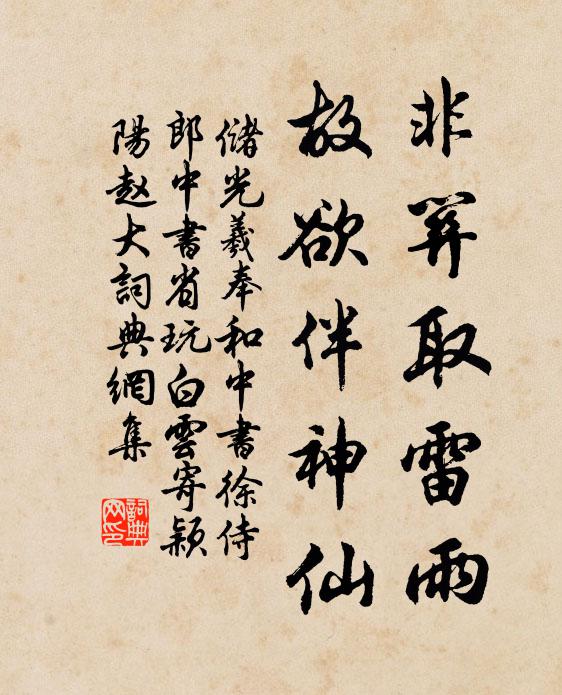 非關取雷雨
故欲伴神仙
儲光羲奉和中書徐侍
郎中書省玩白雲寄穎
陽赵大詞典網集
詞典
网印